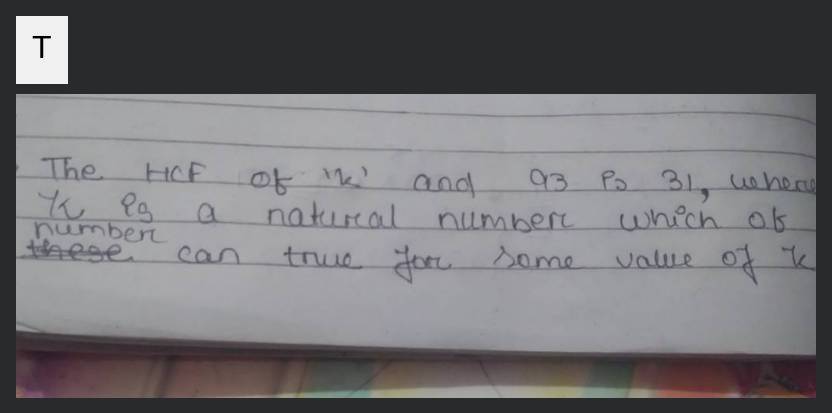 T
The HCF of 'k' and 93 is 31, where
'k is a natural number which of
number
these can true for some value of k